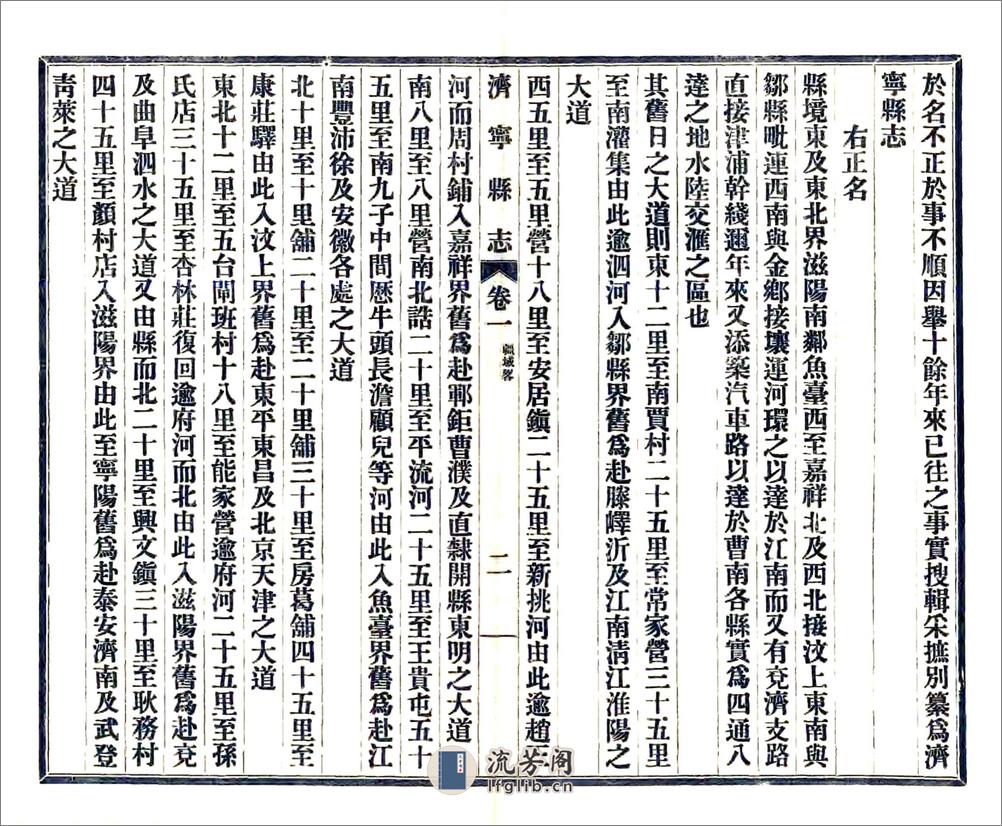 於名不正於事不順因舉十餘年來已往之事實搜輯采摭別纂爲濟
寧縣志
右正名
縣境東及東北界滋陽南鄰魚臺西至嘉祥北及西北接汶上東南與
鄒縣毗連西南與金鄉接壤運河環之以達於江南而又有兗濟支路
直接津浦幹綫邇年來又添築汽車路以達於曹南各縣實爲四通八
達之地水陸交滙之區也
其舊日之大道則東十二里至南賈村二十五里至常家營三十五里
至南灌集由此逾泗河入鄒縣界舊爲赴滕嶧沂及江南淸江淮陽之
大道
西五里至五里營十八里至安居鎭二十五里至新挑河由此逾趙王
濟寧縣志 卷一 疆域畧 二
河而周村鋪入嘉祥界舊爲赴鄆鉅曹濮及直隸開縣東明之大道
南八里至八里營南北誥二十里至平流河二十五里至王貴屯五十
五里至南九子中間歷牛頭長澹顧兒等河由此入魚臺界舊爲赴江
南豐沛徐及安徽各處之大道
北十里至十里舖二十里至二十里舖三十里至房葛舖四十五里至
康莊驛由此入汶上界舊爲赴東平東昌及北京天津之大道
東北十二里至五台閘班村十八里至能家營逾府河二十五里至孫
氏店三十五里至杏林莊復回逾府河而北由此入滋陽界舊爲赴兗
及曲阜泗水之大道又由縣而北二十里至興文鎭三十里至耿務村
四十五里至顏村店入滋陽界由此至寧陽舊爲赴泰安濟南及武登
靑萊之大道
流芳阁
lfglib.cn